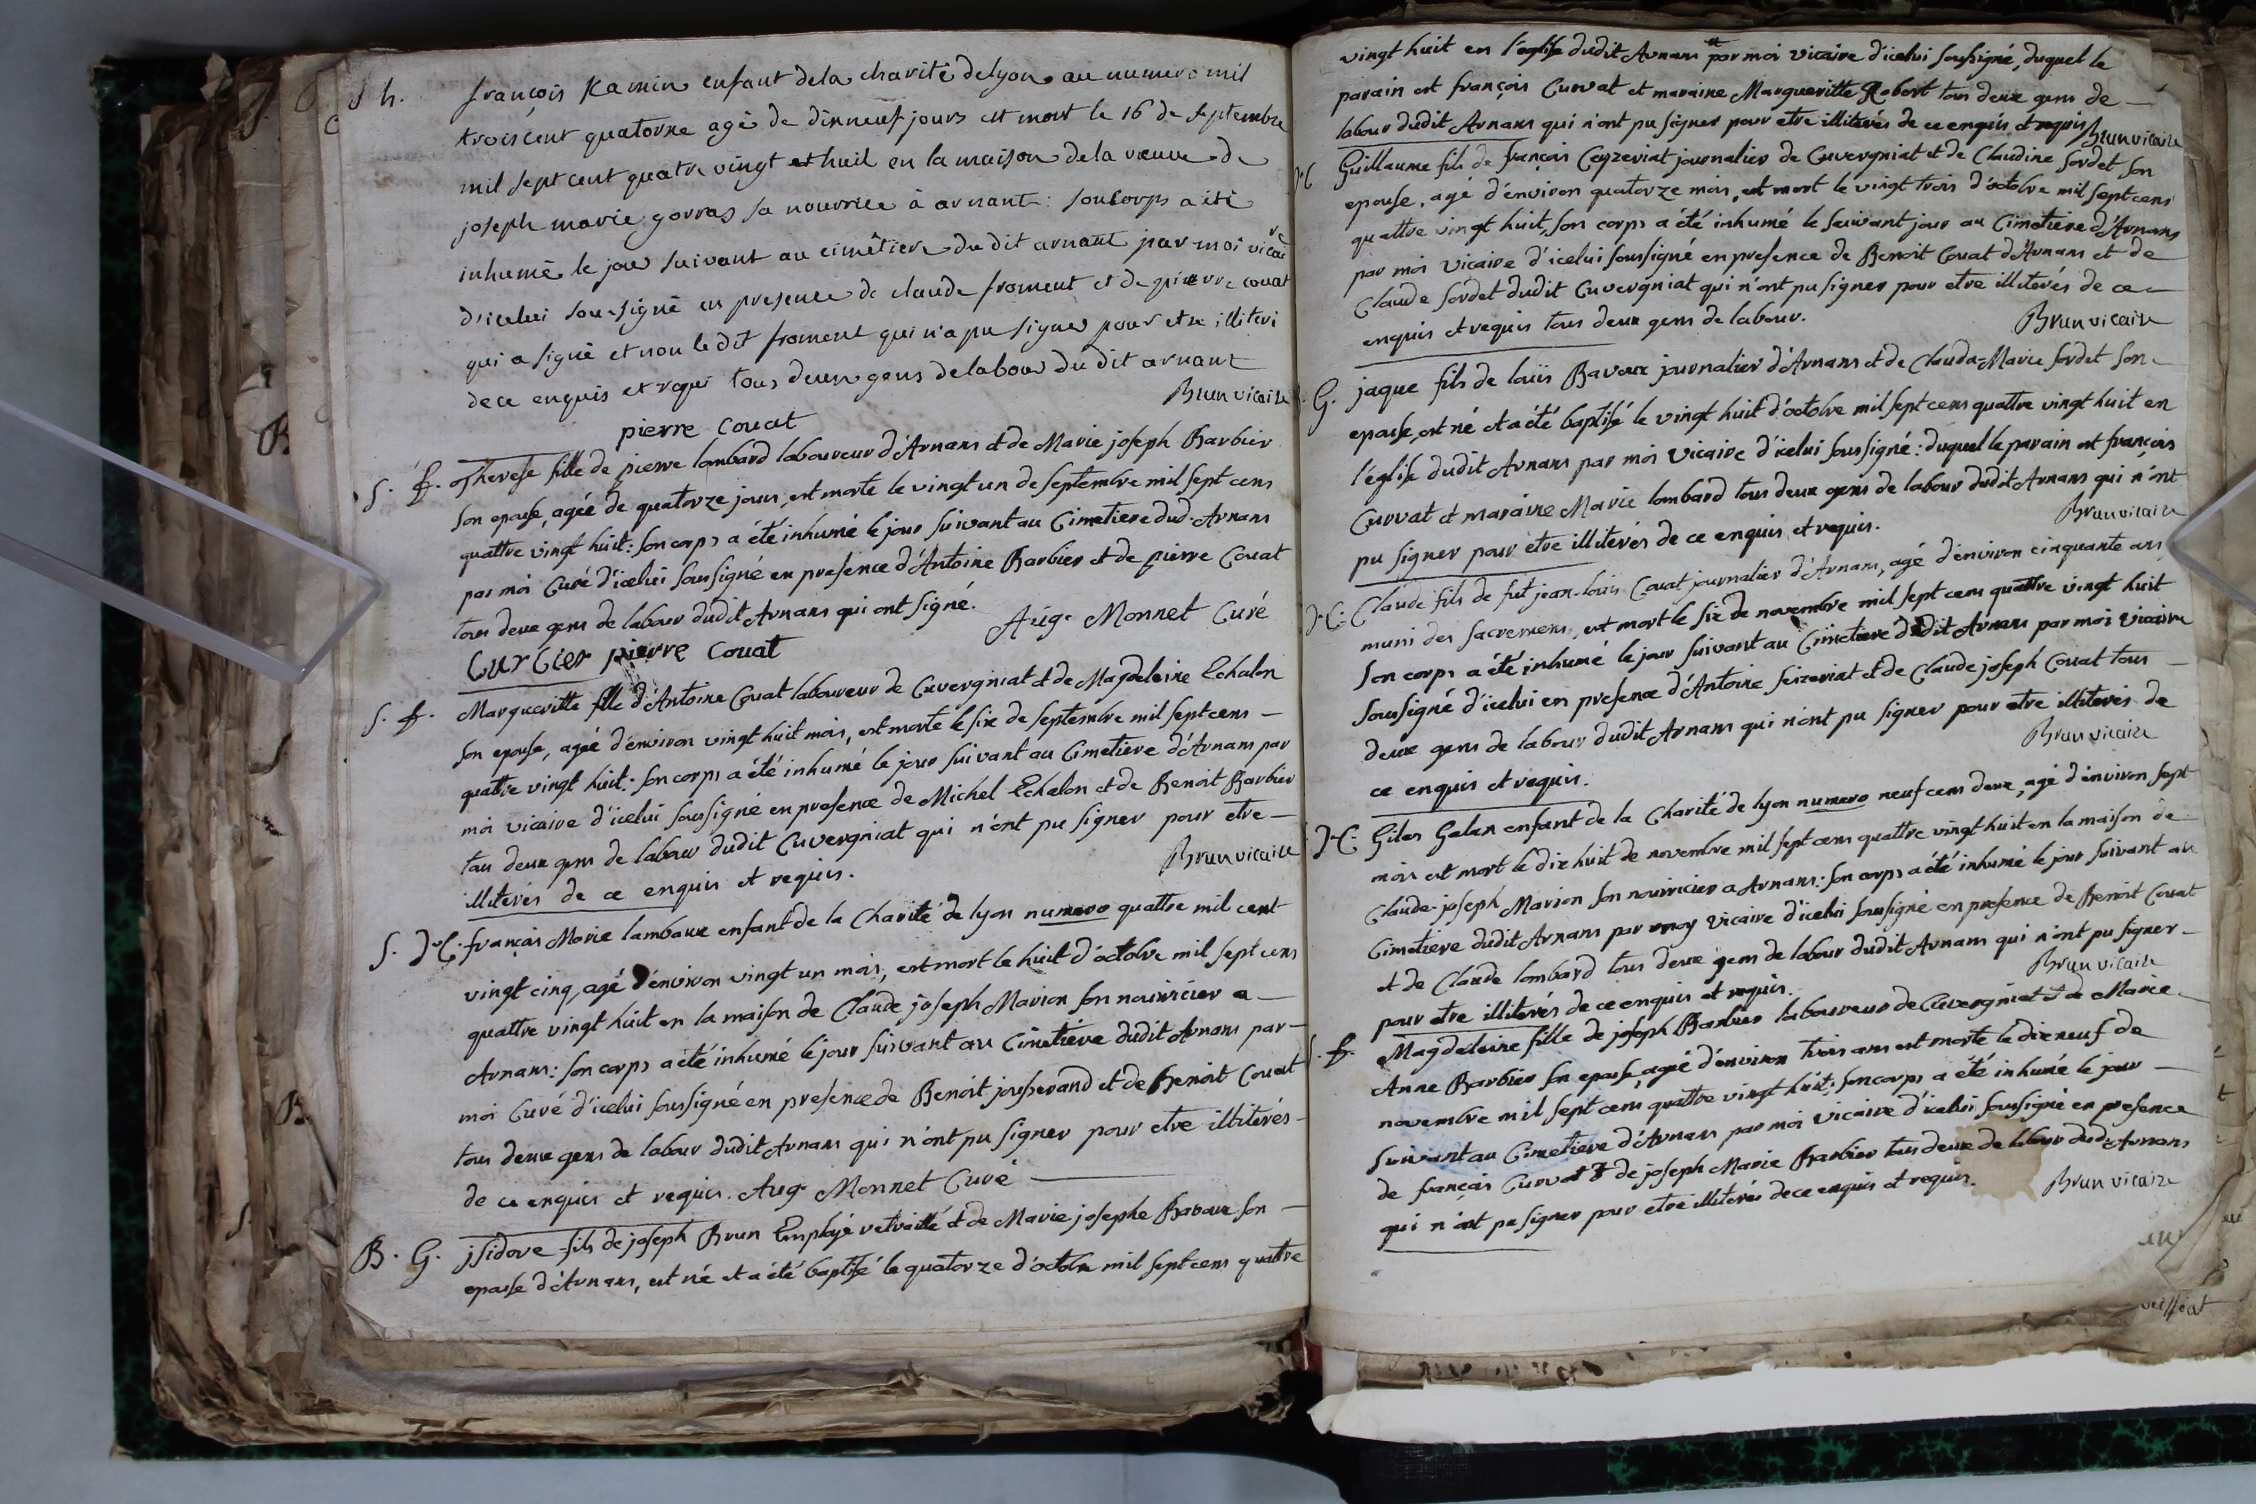 S h. françois Kamin enfant dela charité delyon au numero mil
troiscent quatorne agé de dinneuf jours est mort le 16 de septembre
mil sept cent quatre vingt et huil en la maison dela veuve de
joseph marie gorras sa nourrice à arnant : son corps a été
inhumé le jour suivant au cimêtiere du dit arnant par moi vicaire
d'icelui sousigné en presence de claude froment et de pierre couat
qui a signé et non le dit froment qui n'a pu signer pour etre illiteri
de ce enquis et requi tous deux gens delabour du dit arnant
Brun vicaire
pierre Couat
S. f. Therese fille de pierre lombard laboureur d'Arnans et de Marie joseph Barbier
son epouse, agée de quatorze jours, est morte le vingt un de septembre mil sept cens
quattre vingt huit : son corps a été inhumé le jour suivant au Cimetiere dud. Arnans
par moi Curé d'icelui soussigné en presence d'Antoine Barbier et de pierre Couat
tous deux gens de labour dudit Arnans qui ont signé.
Aug. Monnet Curé
pierre Couat
S. f. Margueritte fille d'Antoine Couat laboureur de Cuvergniat et de Magdeleine Echalon
son epouse, agée d'environ vingt huit mois, est morte le six de septembre mil sept cens —
quattre vingt huit : son corps a été inhumé le jour suivant au Cimetiere d'Arnans par
moi vicaire d'icelui soussigné en presence de Michel Echalon et de Benoit Barbier
tous deux gens de labour dudit Cuvergniat qui n'ont pu signer pour etre —
illiterés de ce enquis et requis.
Brun vicaire
S. H. françois Marie lambaux enfant de la Charité de lyon numero quattre mil cent
vingt cinq, agé d'environ vingt un mois, est mort le huit d'octobre mil sept cens
quattre vingt huit en la maison de Claude joseph Marion son nourricier a —
Arnans : son corps a été inhumé le jour suivant au Cimetiere dudit Arnans par —
moi Curé d'icelui soussigné en presence de Benoit jousserand et de Benoit Couat
tous deux gens de labour dudit Arnans qui n'ont pu signer pour etre illiterés —
de ce enquis et requis. Aug. Monnet Curé
B. G. jsidore fils de joseph Brun Employé retraitté et de Marie josephe Bavoux son —
epouse d'Arnans, est né et a été baptisé le quatorze d'octobre mil sept cens quattre
vingt huit en l'eglise dudit Arnans par moi vicaire d'icelui soussigné, duquel le
parain est françois Curvat et maraine Margueritte Robert tous deux gens de —
labour dudit Arnans qui n'ont pu signer pour etre illiterés de ce enquis et requis Brun vicaire
H. Guillaume fils de françois Ceyzeriat journalier de Cuvergniat et de Claudine sordet son
epouse, agé d'environ quatorze mois, est mort le vingt trois d'octobre mil sept cens
quattre vingt huit, son corps a été inhumé le suivant jour au Cimetiere d'Arnans
par moi vicaire d'icelui soussigné en presence de Benoit Couat d'Arnans et de
Claude sordet dudit Cuvergniat qui n'ont pu signer pour etre illiterés de ce —
enquis et requis tous deux gens de labour.
Brun vicaire
G. jaque fils de loüis Bavoux journalier d'Arnans et de Clauda-Marie sordet son
epouse, est né et a été baptisé le vingt huit d'octobre mil sept cens quattre vingt huit en
l'église dudit Arnans par moi vicaire d'icelui soussigné : duquel le parain est françois
Curvat et maraine Marie lombard tous deux gens de labour dudit Arnans qui n'ont
pu signer pour etre illiterés de ce enquis et requis.
Brun vicaire
H. Claude fils de fut jean-louis Couat journalier d'Arnans, agé d'environ cinquante ans
muni des sacremens, est mort le six de novembre mil sept cens quattre vingt huit
son corps a été inhumé le jour suivant au Cimetiere dudit Arnans par moi vicaire
soussigné d'icelui en presence d'Antoine seizeriat et de Claude joseph Couat tous —
deux gens de labour dudit Arnans qui n'ont pu signer pour etre illiterés de
ce enquis et requis.
Brun vicaire
H. Giles Galan enfant de la Charité de lyon numero neuf cens deux, agé d'environ sept
mois est mort le dix huit de novembre mil sept cens quattre vingt huit en la maison de
Claude-joseph Marion son nourricier a Arnans : son corps a été inhumé le jour suivant au
Cimetiere dudit Arnans par moy vicaire d'icelui soussigné en presence de Benoit Couat
et de Claude lombard tous deux gens de labour dudit Arnans qui n'ont pu signer —
pour etre illiterés de ce enquis et requis.
Brun vicaire
f. Magdeleine fille de joseph Barbier laboureur de Cuvergniat et de Marie —
Anne Barbier son epouse, agée d'environ trois ans est morte le dix neuf de
novembre mil sept cens quattre vingt huit : son corps a été inhumé le jour —
suivant au Cimetiere d'Arnans par moi vicaire d'icelui soussigné en presence
de françois Curvat & de joseph Marie Barbier tous deux de labour dudit Arnans
qui n'ont pu signer pour etre illiterés de ce enquis et requis.
Brun vicaire